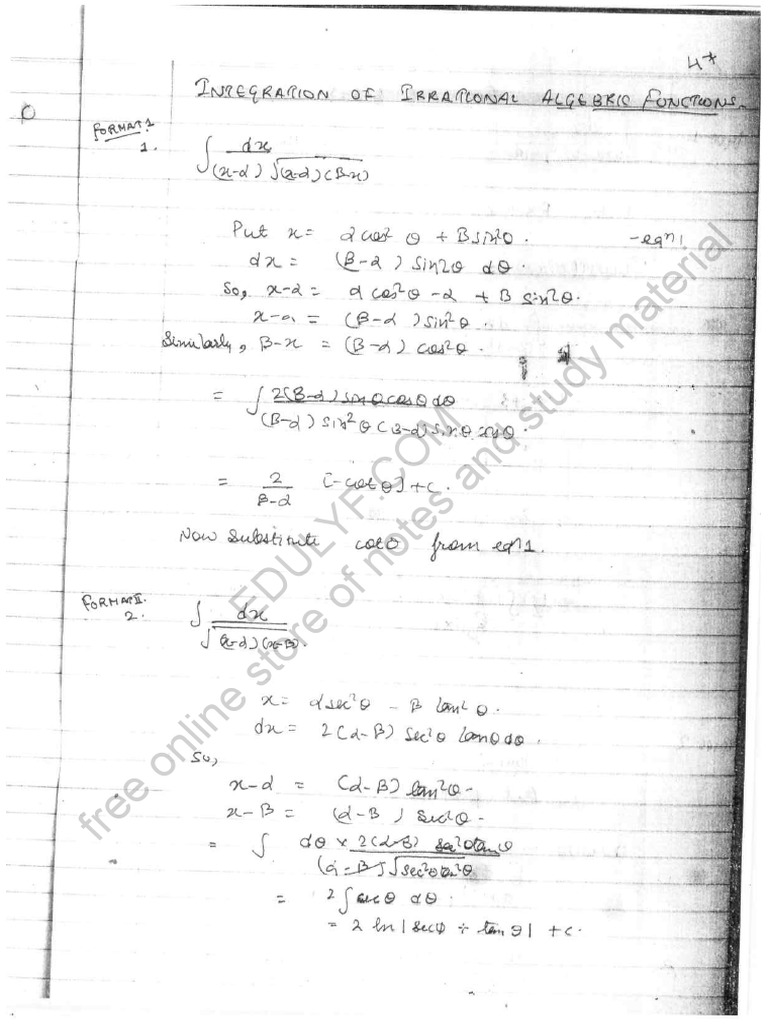 4*
INTEGRATION OF IRRATIONAL ALGEBRIC FUNCTIONS.
FORMAT 1
1. ∫ dx / (x-α) √(x-α)(β-x)
Put x = α cos² θ + β sin²θ. - eqⁿ 1
dx = (β-α) sin2θ dθ.
So, x-α = α cos²θ - α + β sin²θ.
x-α = (β-α) sin²θ.
Similarly, β-x = (β-α) cos²θ.
= ∫ 2(β-α) sinθ cosθ dθ / (β-α) sin²θ (β-α) sinθ cosθ.
= 2 / β-α [-cot θ] + c.
Now substitute cotθ from eqⁿ 1.
FORMAT II.
2. ∫ dx / √(x-α)(x-β).
x = α sec²θ - β tan²θ.
dx = 2(α-β) sec²θ tanθ dθ.
So,
x-α = (α-β) tan²θ.
x-β = (α-β) sec²θ.
= ∫ dθ × 2(α-β) sec²θ tanθ / (α-β) √sec²θ tan²θ
= 2 ∫ secθ dθ.
= 2 ln | secθ + tan θ | + c.
EDULYF.COM
free online store of notes and study material